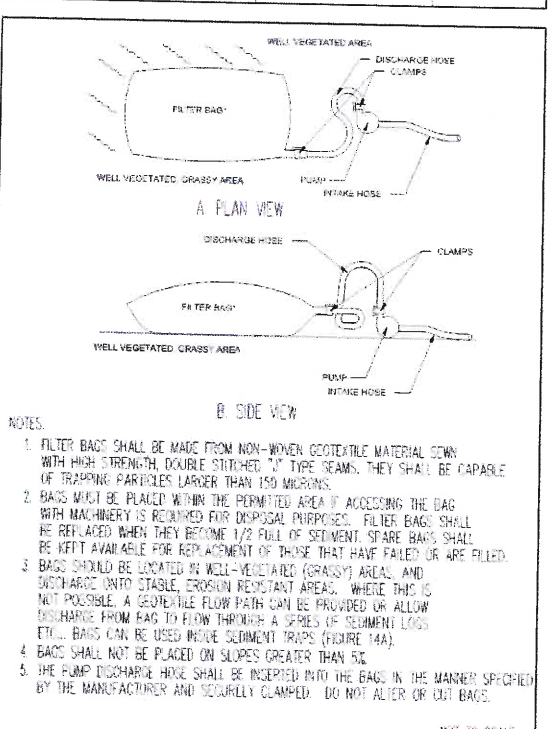 WELL VEGETATED AREA
DISCHARGE HOSE
CLAMPS
FILTER BAG*
WELL VEGETATED, GRASSY AREA
PUMP
INTAKE HOSE
A. PLAN VIEW
DISCHARGE HOSE
CLAMPS
FILTER BAG*
WELL VEGETATED, GRASSY AREA
PUMP
INTAKE HOSE
B. SIDE VIEW
NOTES:
1. FILTER BAGS SHALL BE MADE FROM NON-WOVEN GEOTEXTILE MATERIAL SEWN
WITH HIGH STRENGTH, DOUBLE STITCHED "J" TYPE SEAMS. THEY SHALL BE CAPABLE
OF TRAPPING PARTICLES LARGER THAN 150 MICRONS.
2. BAGS MUST BE PLACED WITHIN THE PERMITTED AREA IF ACCESSING THE BAG
WITH MACHINERY IS REQUIRED FOR DISPOSAL PURPOSES. FILTER BAGS SHALL
BE REPLACED WHEN THEY BECOME 1/2 FULL OF SEDIMENT. SPARE BAGS SHALL
BE KEPT AVAILABLE FOR REPLACEMENT OF THOSE THAT HAVE FAILED OR ARE FILLED.
3. BAGS SHOULD BE LOCATED IN WELL-VEGETATED (GRASSY) AREAS, AND
DISCHARGE ONTO STABLE, EROSION RESISTANT AREAS. WHERE THIS IS
NOT POSSIBLE, A GEOTEXTILE FLOW PATH CAN BE PROVIDED OR ALLOW
DISCHARGE FROM BAG TO FLOW THROUGH A SERIES OF SEDIMENT LOGS
ETC... BAGS CAN BE USED INSIDE SEDIMENT TRAPS (FIGURE 14A).
4. BAGS SHALL NOT BE PLACED ON SLOPES GREATER THAN 5%.
5. THE PUMP DISCHARGE HOSE SHALL BE INSERTED INTO THE BAGS IN THE MANNER SPECIFIED
BY THE MANUFACTURER AND SECURELY CLAMPED. DO NOT ALTER OR CUT BAGS.